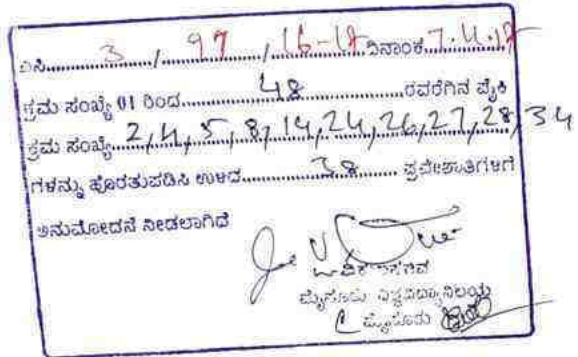 ಎಸಿ 3 / 97 / 16-17 ದಿನಾಂಕ 7.4.17
ಕ್ರಮ ಸಂಖ್ಯೆ 01 ರಿಂದ 48 ರವರೆಗಿನ ಪೈಕಿ
ಕ್ರಮ ಸಂಖ್ಯೆ 2, 4, 5, 8, 14, 24, 26, 27, 28, 34
ಗಳನ್ನು ಹೊರತುಪಡಿಸಿ ಉಳಿದ 38 ಪ್ರವೇಶಾತಿಗಳಿಗೆ
ಅನುಮೋದನೆ ನೀಡಲಾಗಿದೆ
ಮೈಸೂರು ವಿಶ್ವವಿದ್ಯಾನಿಲಯ
ಮೈಸೂರು